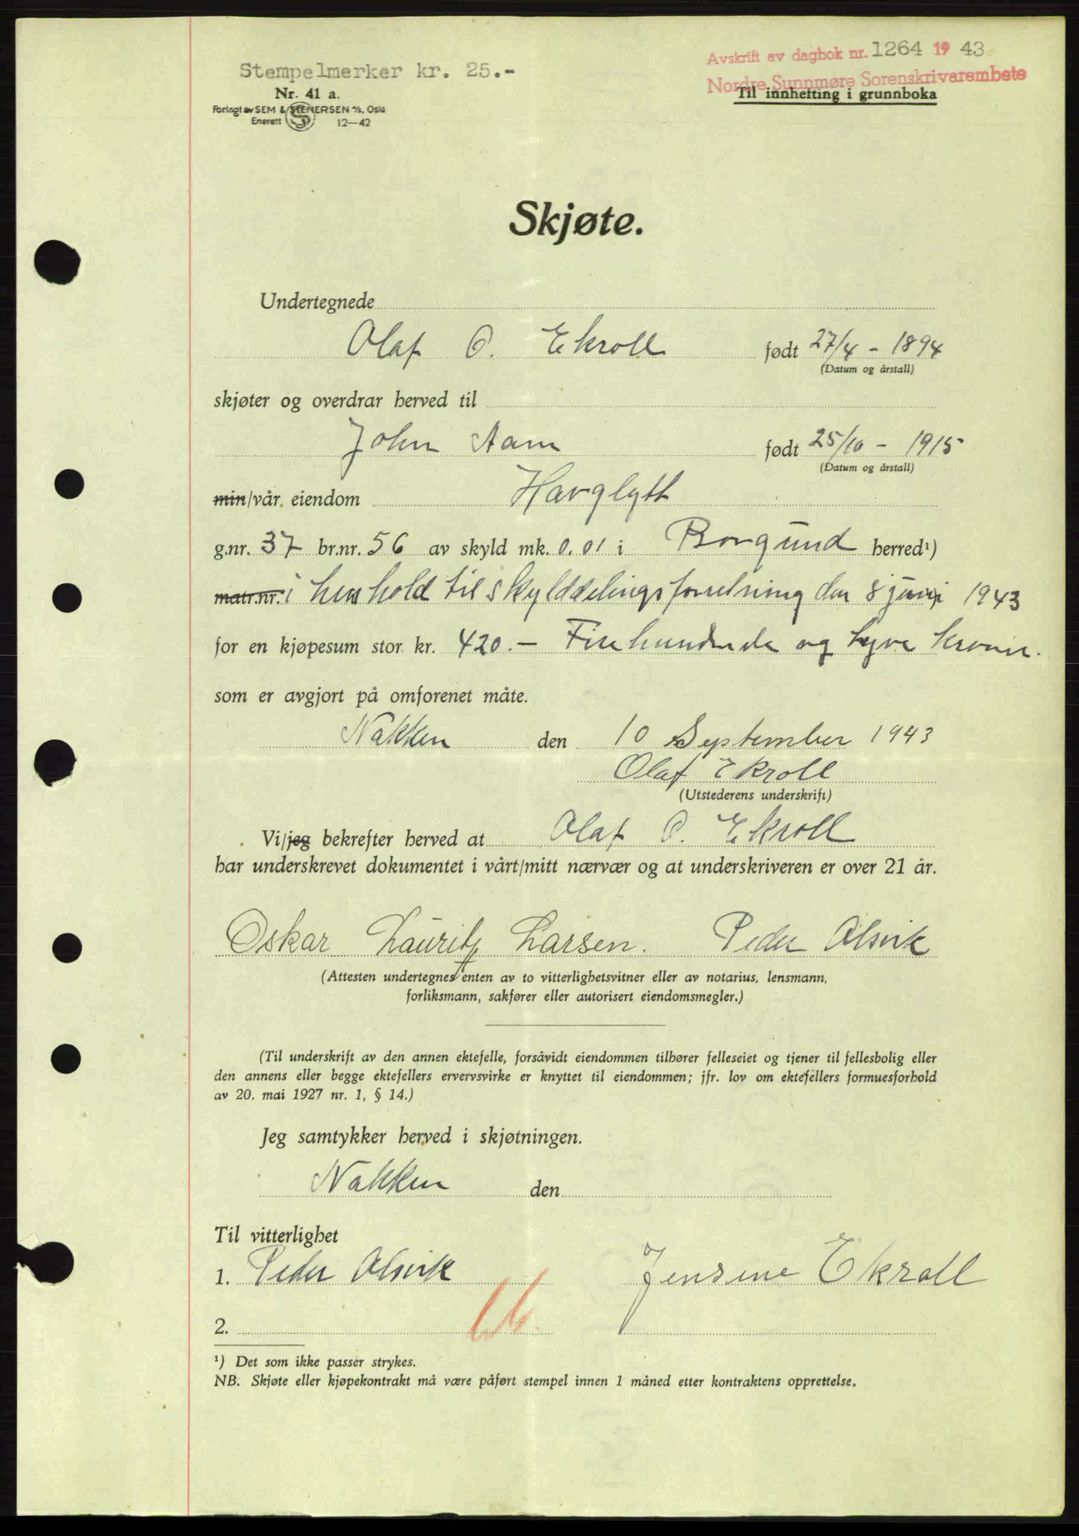 Avskrift av dagbok nr. 1264 1943
Stempelmerker kr. 25.-
Nordre Sunnmøre Sorenskriverembete
Nr. 41 a.
Til innhefting i grunnboka
Forlagt av SEM & STENERSEN A/S, Oslo
Enerett S 12—42
Skjøte.
Undertegnede
Olaf O. Ekroll født 27/4 - 1894
(Datum og årstall)
skjøter og overdrar herved til
John Aam født 25/10 - 1915
(Datum og årstall)
min/vår eiendom Havglytt
g.nr. 37 br.nr. 56 av skyld mk. 0.01 i Borgund herred¹)
matr.nr. i henhold til skylddelingsforretning den 8 juni 1943
for en kjøpesum stor kr. 420.- Firehundrede og tyve kroner.
som er avgjort på omforenet måte.
Nakken den 10 September 1943
Olaf Ekroll
(Utstederens underskrift)
Vi/jeg bekrefter herved at Olaf O. Ekroll
har underskrevet dokumentet i vårt/mitt nærvær og at underskriveren er over 21 år.
Oskar Lauritz Larsen. Peder Alsvik
(Attesten undertegnes enten av to vitterlighetsvitner eller av notarius, lensmann,
forliksmann, sakfører eller autorisert eiendomsmegler.)
(Til underskrift av den annen ektefelle, forsåvidt eiendommen tilhører felleseiet og tjener til fellesbolig eller
den annens eller begge ektefellers ervervsvirke er knyttet til eiendommen; jfr. lov om ektefellers formuesforhold
av 20. mai 1927 nr. 1, § 14.)
Jeg samtykker herved i skjøtningen.
Nakken den
Til vitterlighet
1. Peder Alsvik Jensine Ekroll
2.
¹) Det som ikke passer strykes.
NB. Skjøte eller kjøpekontrakt må være påført stempel innen 1 måned etter kontraktens opprettelse.